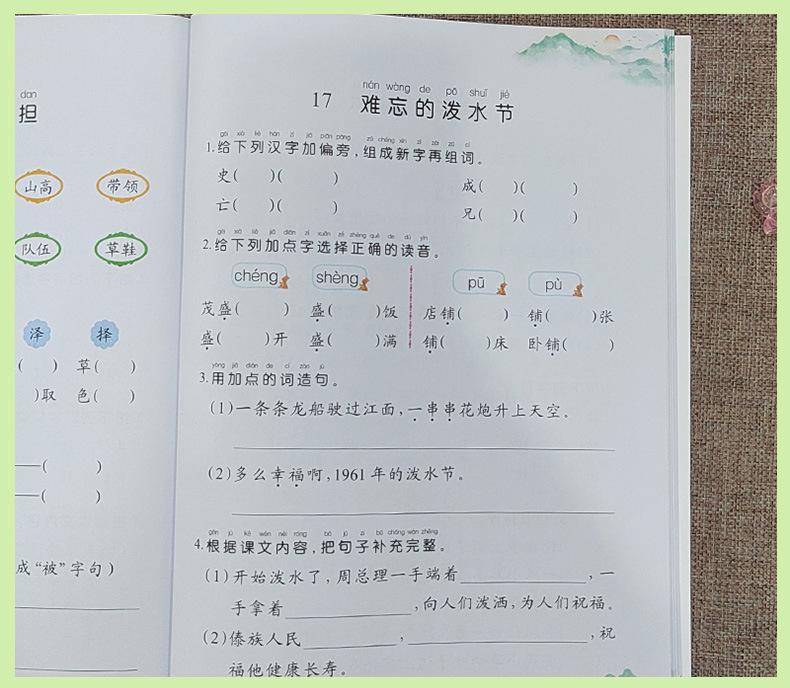 dan
担
山高 带领
队伍 草鞋
泽 择
( ) 草( )
)取 色( )
——( )
——( )
成“被”字句)
nán wàng de pō shuǐ jié
17 难忘的泼水节
1.给下列汉字加偏旁,组成新字再组词。
史( )( ) 成( )( )
亡( )( ) 兄( )( )
2.给下列加点字选择正确的读音。
chéng shèng pū pù
茂盛( ) 盛( )饭 店铺( ) 铺( )张
盛( )开 盛( )满 铺( )床 卧铺( )
yòng jiā diǎn de cí zào jù
3.用加点的词造句。
(1)一条条龙船驶过江面,一串串花炮升上天空。
(2)多么幸福啊,1961年的泼水节。
gēn jù kè wén nèi róng bǎ jù zi bǔ chōng wán zhěng
4.根据课文内容,把句子补充完整。
(1)开始泼水了,周总理一手端着________,一
手拿着________,向人们泼洒,为人们祝福。
(2)傣族人民________,________,祝
福他健康长寿。